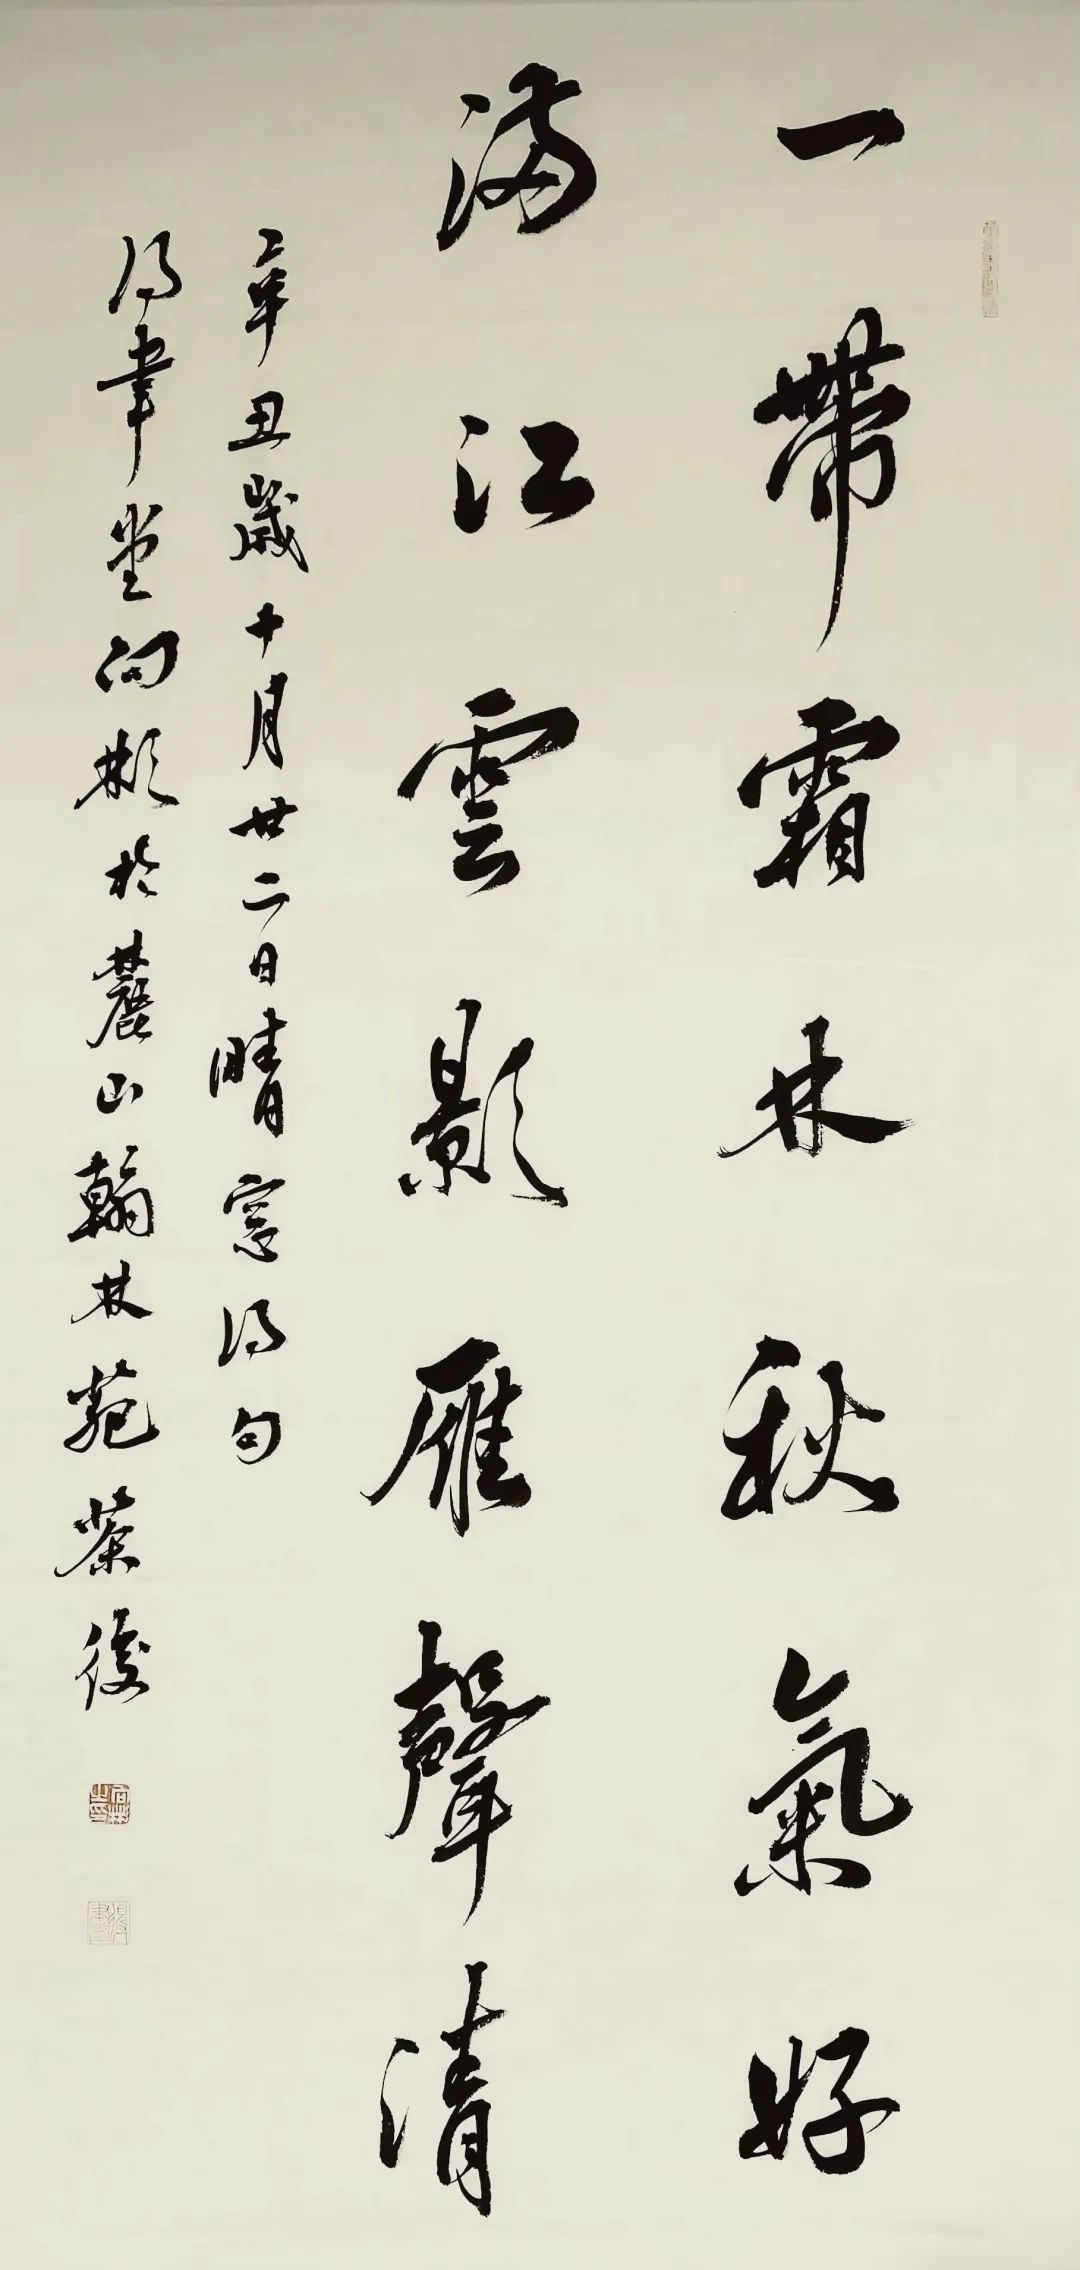 一帶霜林秋氣好
滿江雲影雁聲清
辛丑歲十月廿二日晴窗得句
得筆堂向彬於麓山翰林苑茶後